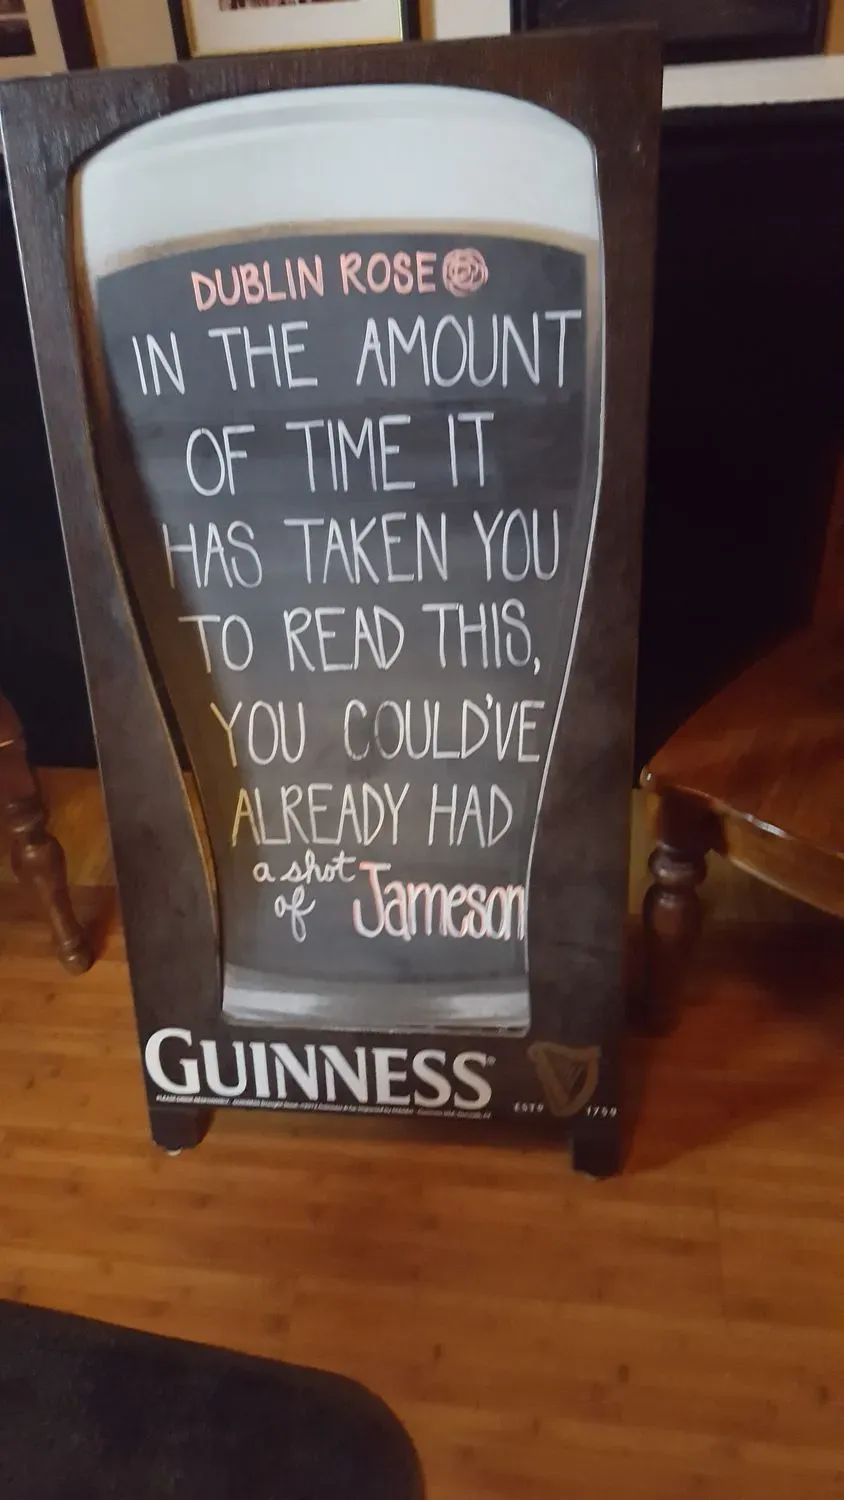 DUBLIN ROSE
IN THE AMOUNT
OF TIME IT
HAS TAKEN YOU
TO READ THIS,
YOU COULD'VE
ALREADY HAD
a shot
of Jameson
GUINNESS®
ESTD 1759